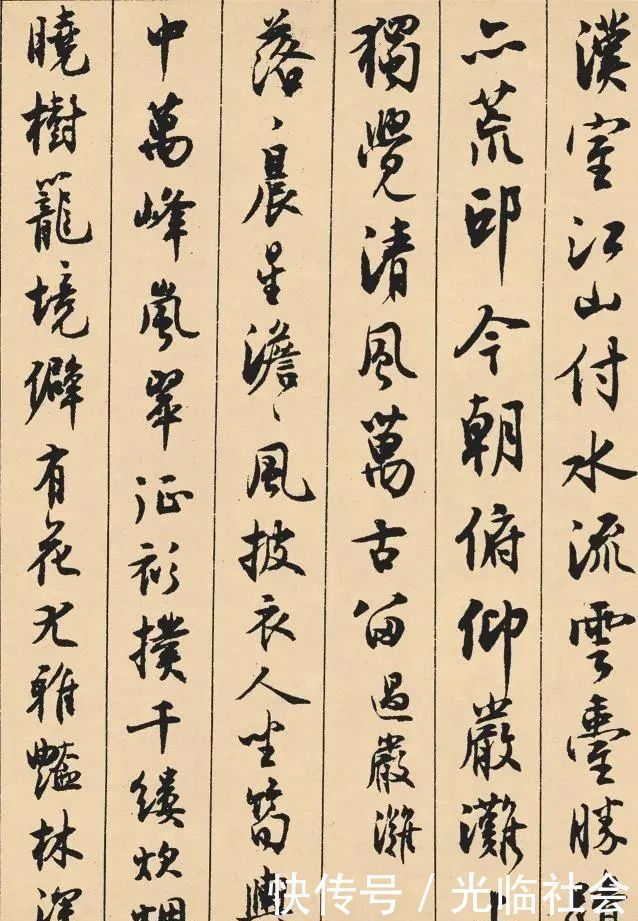 漢室江山付水流雲臺勝
亦荒邱今朝俯仰嚴灘
獨覺清風萬古留過嚴灘
落〻晨星澹〻風披衣人坐筍輿
中萬峰嵐翠征衫撲千縷炊烟
曉樹籠境僻有花尤雅豔林深
快传号/光临社会